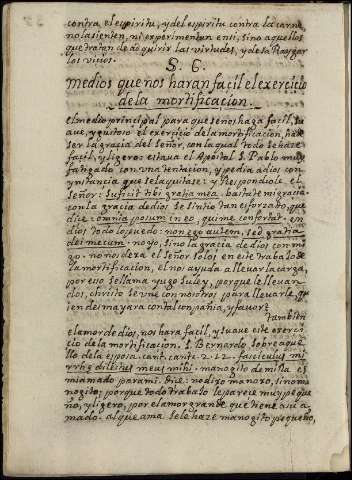 contra el espiritu, y del espiritu contra la carne
no la sienten, ni experimentan en si, sino aquellos
que tratan de adquirir las virtudes, y desa Raygar
los vicios.
S. 6.
Medios que nos haran facil el exercicio
de la mortificacion.
el medio principal para que se nos haga facil, su
ave, y gustoso el exercicio de la mortificacion, ha de
ser la gracia del señor, con la qual todo se hace
facil, y ligero: estava el Apostol S. Pablo muy
fatigado con una tentacion, y pedia a dios con
ynstancia que se la quitase: y Respondiole el
Señor: Sufficit tibi gratia mea. bastate mi gracia.
con la gracia de dios se sintio tan esforzado, que
dice: omnia posum in eo, qui me confortat. en
dios todo lo puedo: non ego autem, sed gratia
dei mecum: no yo, sino la gracia de dios con mi
go. no nos dexa el Señor solos en este trabajo de
la mortificacion, el nos ayuda a llevar la carga,
por eso se llama yugo su ley, porque le llevan
dos, christo se une con nosotros para llevarle, qui
en desmayara con tal compañia, y favor?
tambien
el amor de dios, nos hara facil, y suave este exerci
cio de la mortificacion. S. Bernardo sobre aque
llo de la esposa cant. cant. 2. 12. fasciculus mi
rrhæ dilectus meus mihi: manogito de mirra es
mi amado para mi. Dice: no dixo manoxo, sino ma
nogito: porque todo trabajo le pareze muy peque
ño, y ligero, por el amor grande que tiene a su a
mado. al que ama se le haze manogito pequeño,